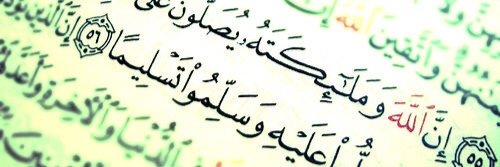 وَٱتَّقِينَ ٱللَّهَ إِنَّ
٥٥ إِنَّ ٱللَّهَ وَمَلَٰٓئِكَتَهُۥ يُصَلُّونَ عَلَى
عَلَيْهِ وَسَلِّمُوا۟ تَسْلِيمًا ٥٦ إِنَّ ٱلَّذِينَ
ٱلدُّنْيَا وَٱلْءَاخِرَةِ وَأَعَدَّ